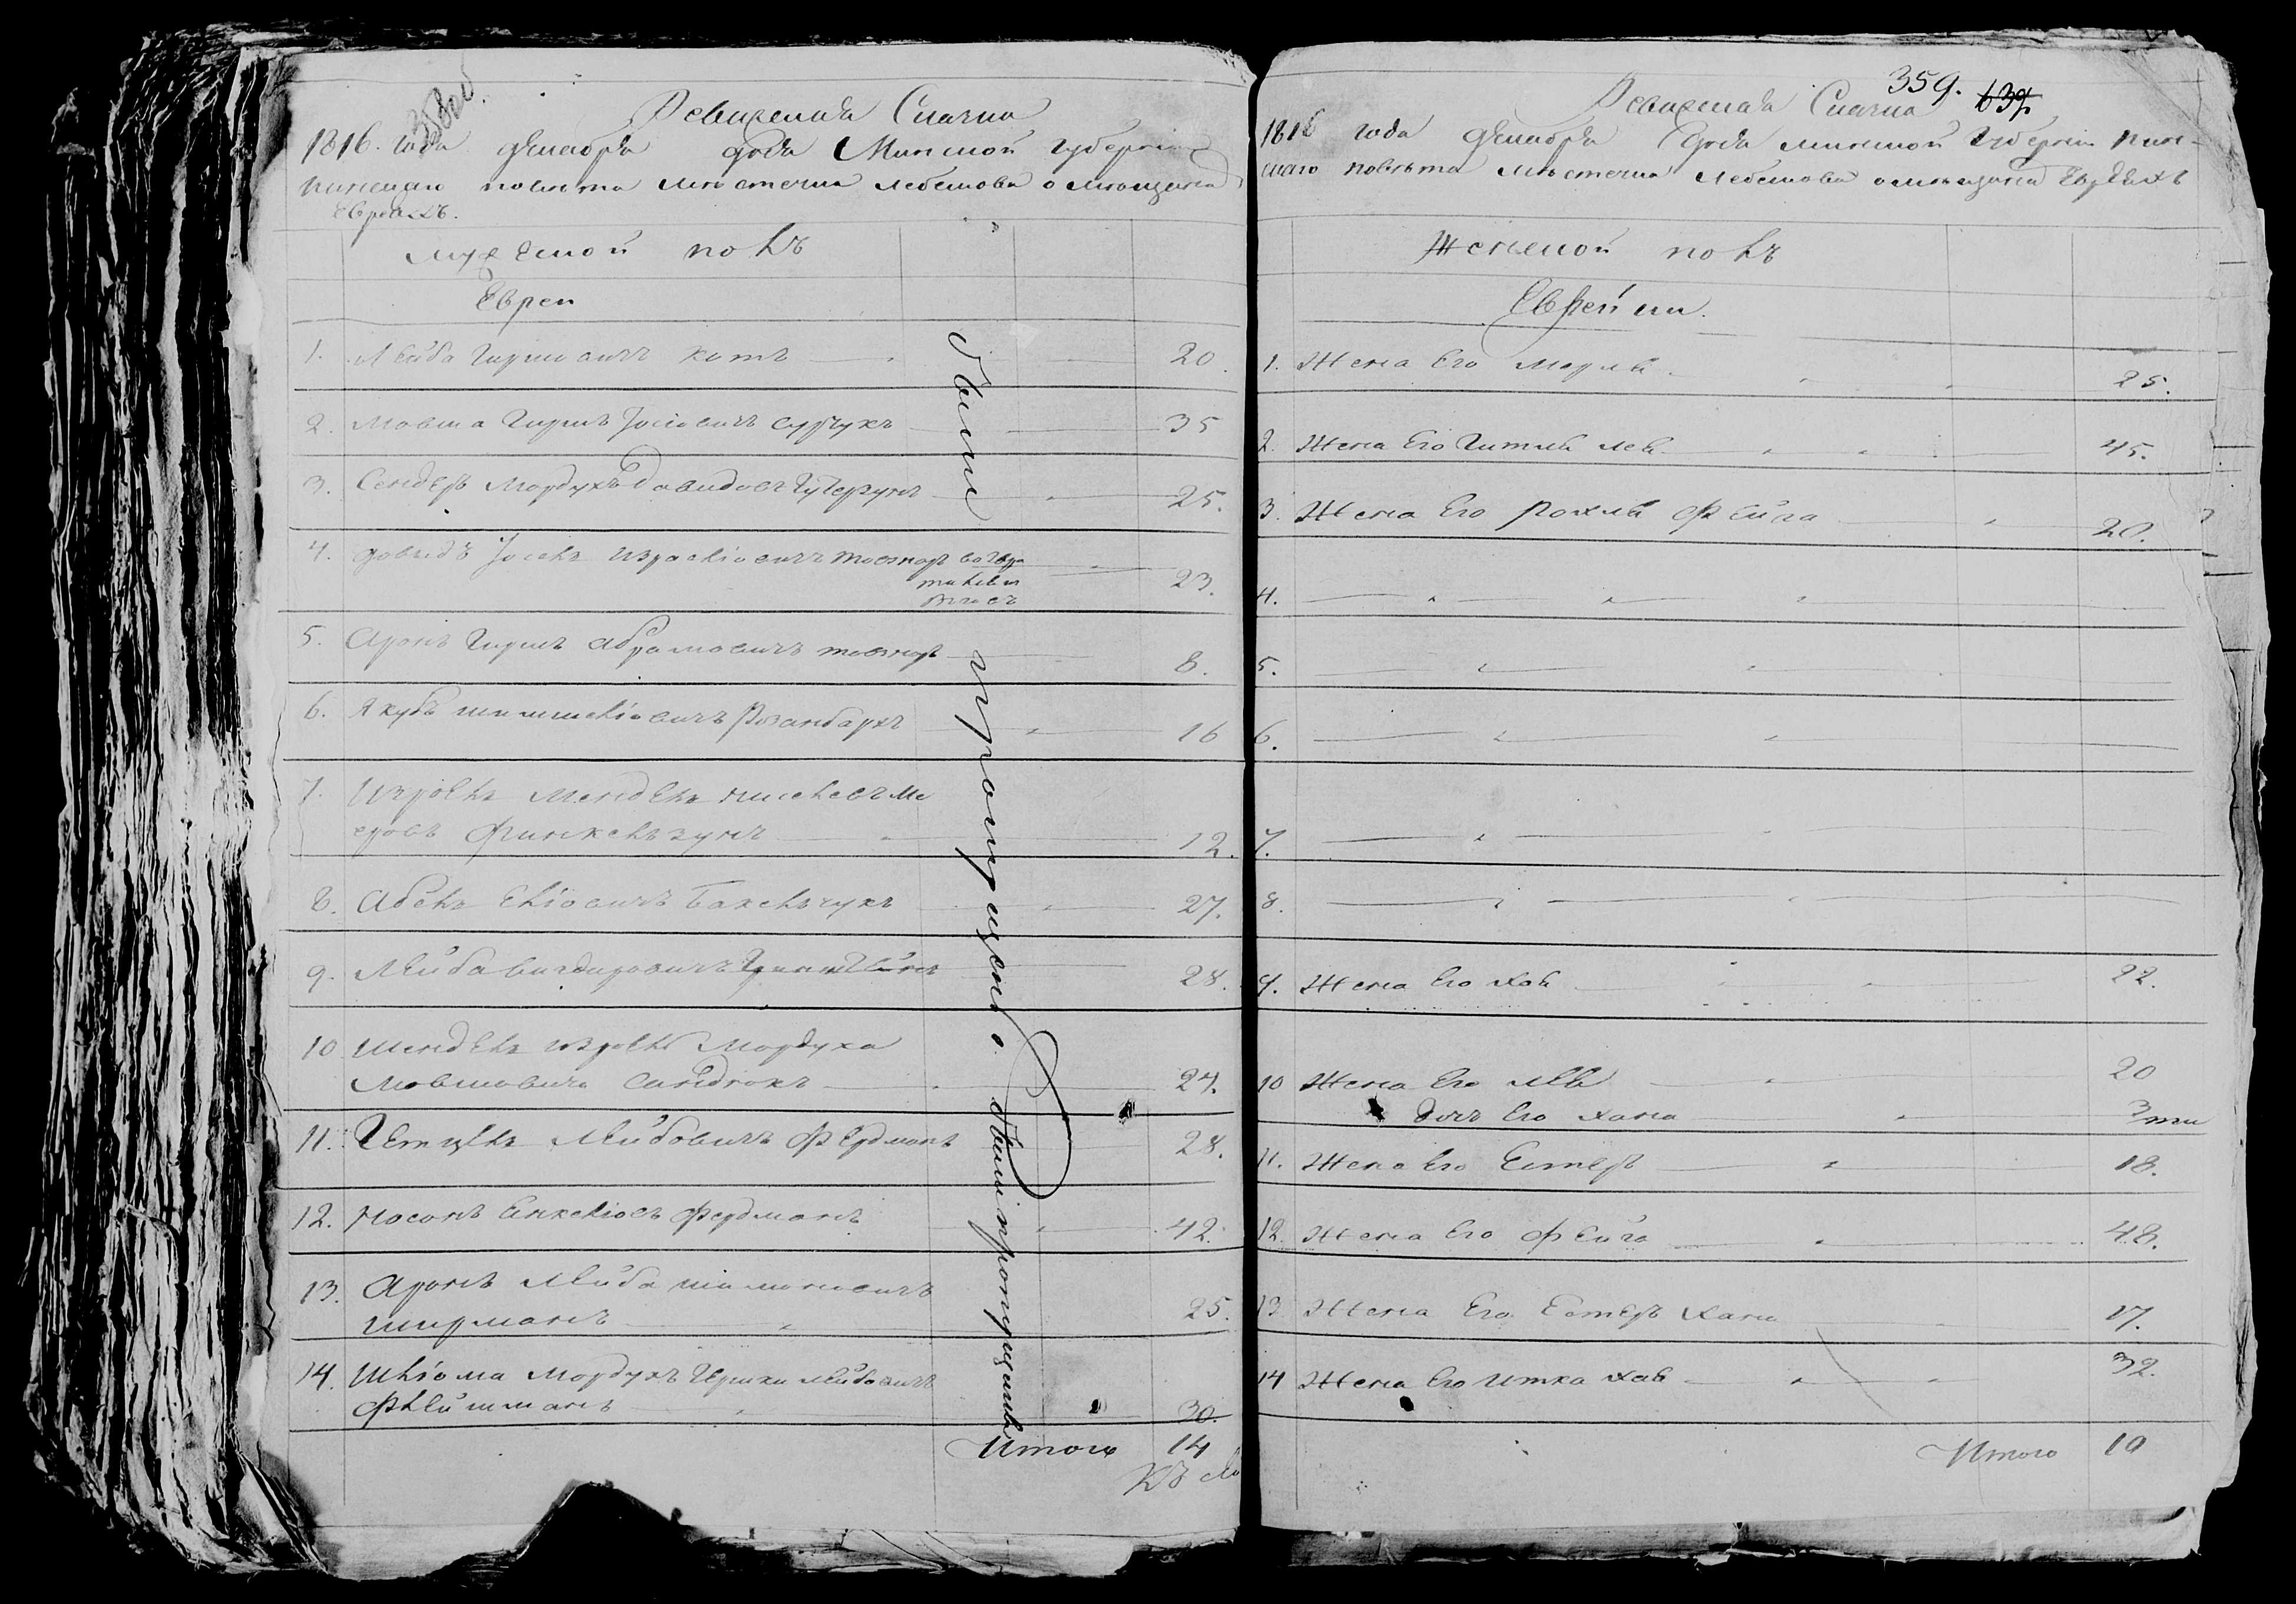 Ревизская Сказка
1816. года декабря дня Минской губернии
пинскаго повета местечка Лебешова о мещанах
Евреяхъ.
мужеской полъ
Евреи
1. Лейба Гиршовичъ Котъ 20.
2. Мовша Гиршъ Іосіовичъ 35
3. Сендеръ Мордухъ Давидовъ 25.
4. Довидъ Іосель Израеліовичъ 23.
5. Аронъ Гиршъ Абрамовичъ 8.
6. Якубъ Шимшеліовичъ Розанбархъ 16
7. Израель Мендель Нисилевъ Ме
еровъ Финкельзунъ 12.
8. Абель Еліовичъ Бакельчукъ 27.
9. Лейба Вигдировичъ 28.
10 Шендель Израель Мордуха
Мовшовичъ Сандюкъ 24.
11. Гецель Лейбовичъ Фердманъ 28.
12. Носонъ Янкеліовъ Фердманъ 42.
13. Аронъ Лейба Шимоновичъ
Шифманъ 25.
14. Шліома Мордухъ Гершки Лейбовичъ
Флейшманъ 30.
Итого 14
были пропущены.
были пропущены
359. 639.
Ревизская Сказка
1816 года декабря дня минской губернии пин-
скаго повета местечка Лебешова о мещанахъ Евреяхъ
Женской полъ
Еврейки.
1. Жена Его Мерля 25.
2. Жена Его Гитля Лея 45.
3. Жена Его Рохля Фейга 20.
4.
5.
6.
7.
8.
9. Жена Его Хая 22.
10 Жена Его Лея 20
дочь Его Хана 3ти
11. Жена Его Естеръ 18.
12. Жена Его Фейга 48.
13 Жена Его Естеръ Хана 17.
14 Жена Его Итка Хая 32.
Итого 10